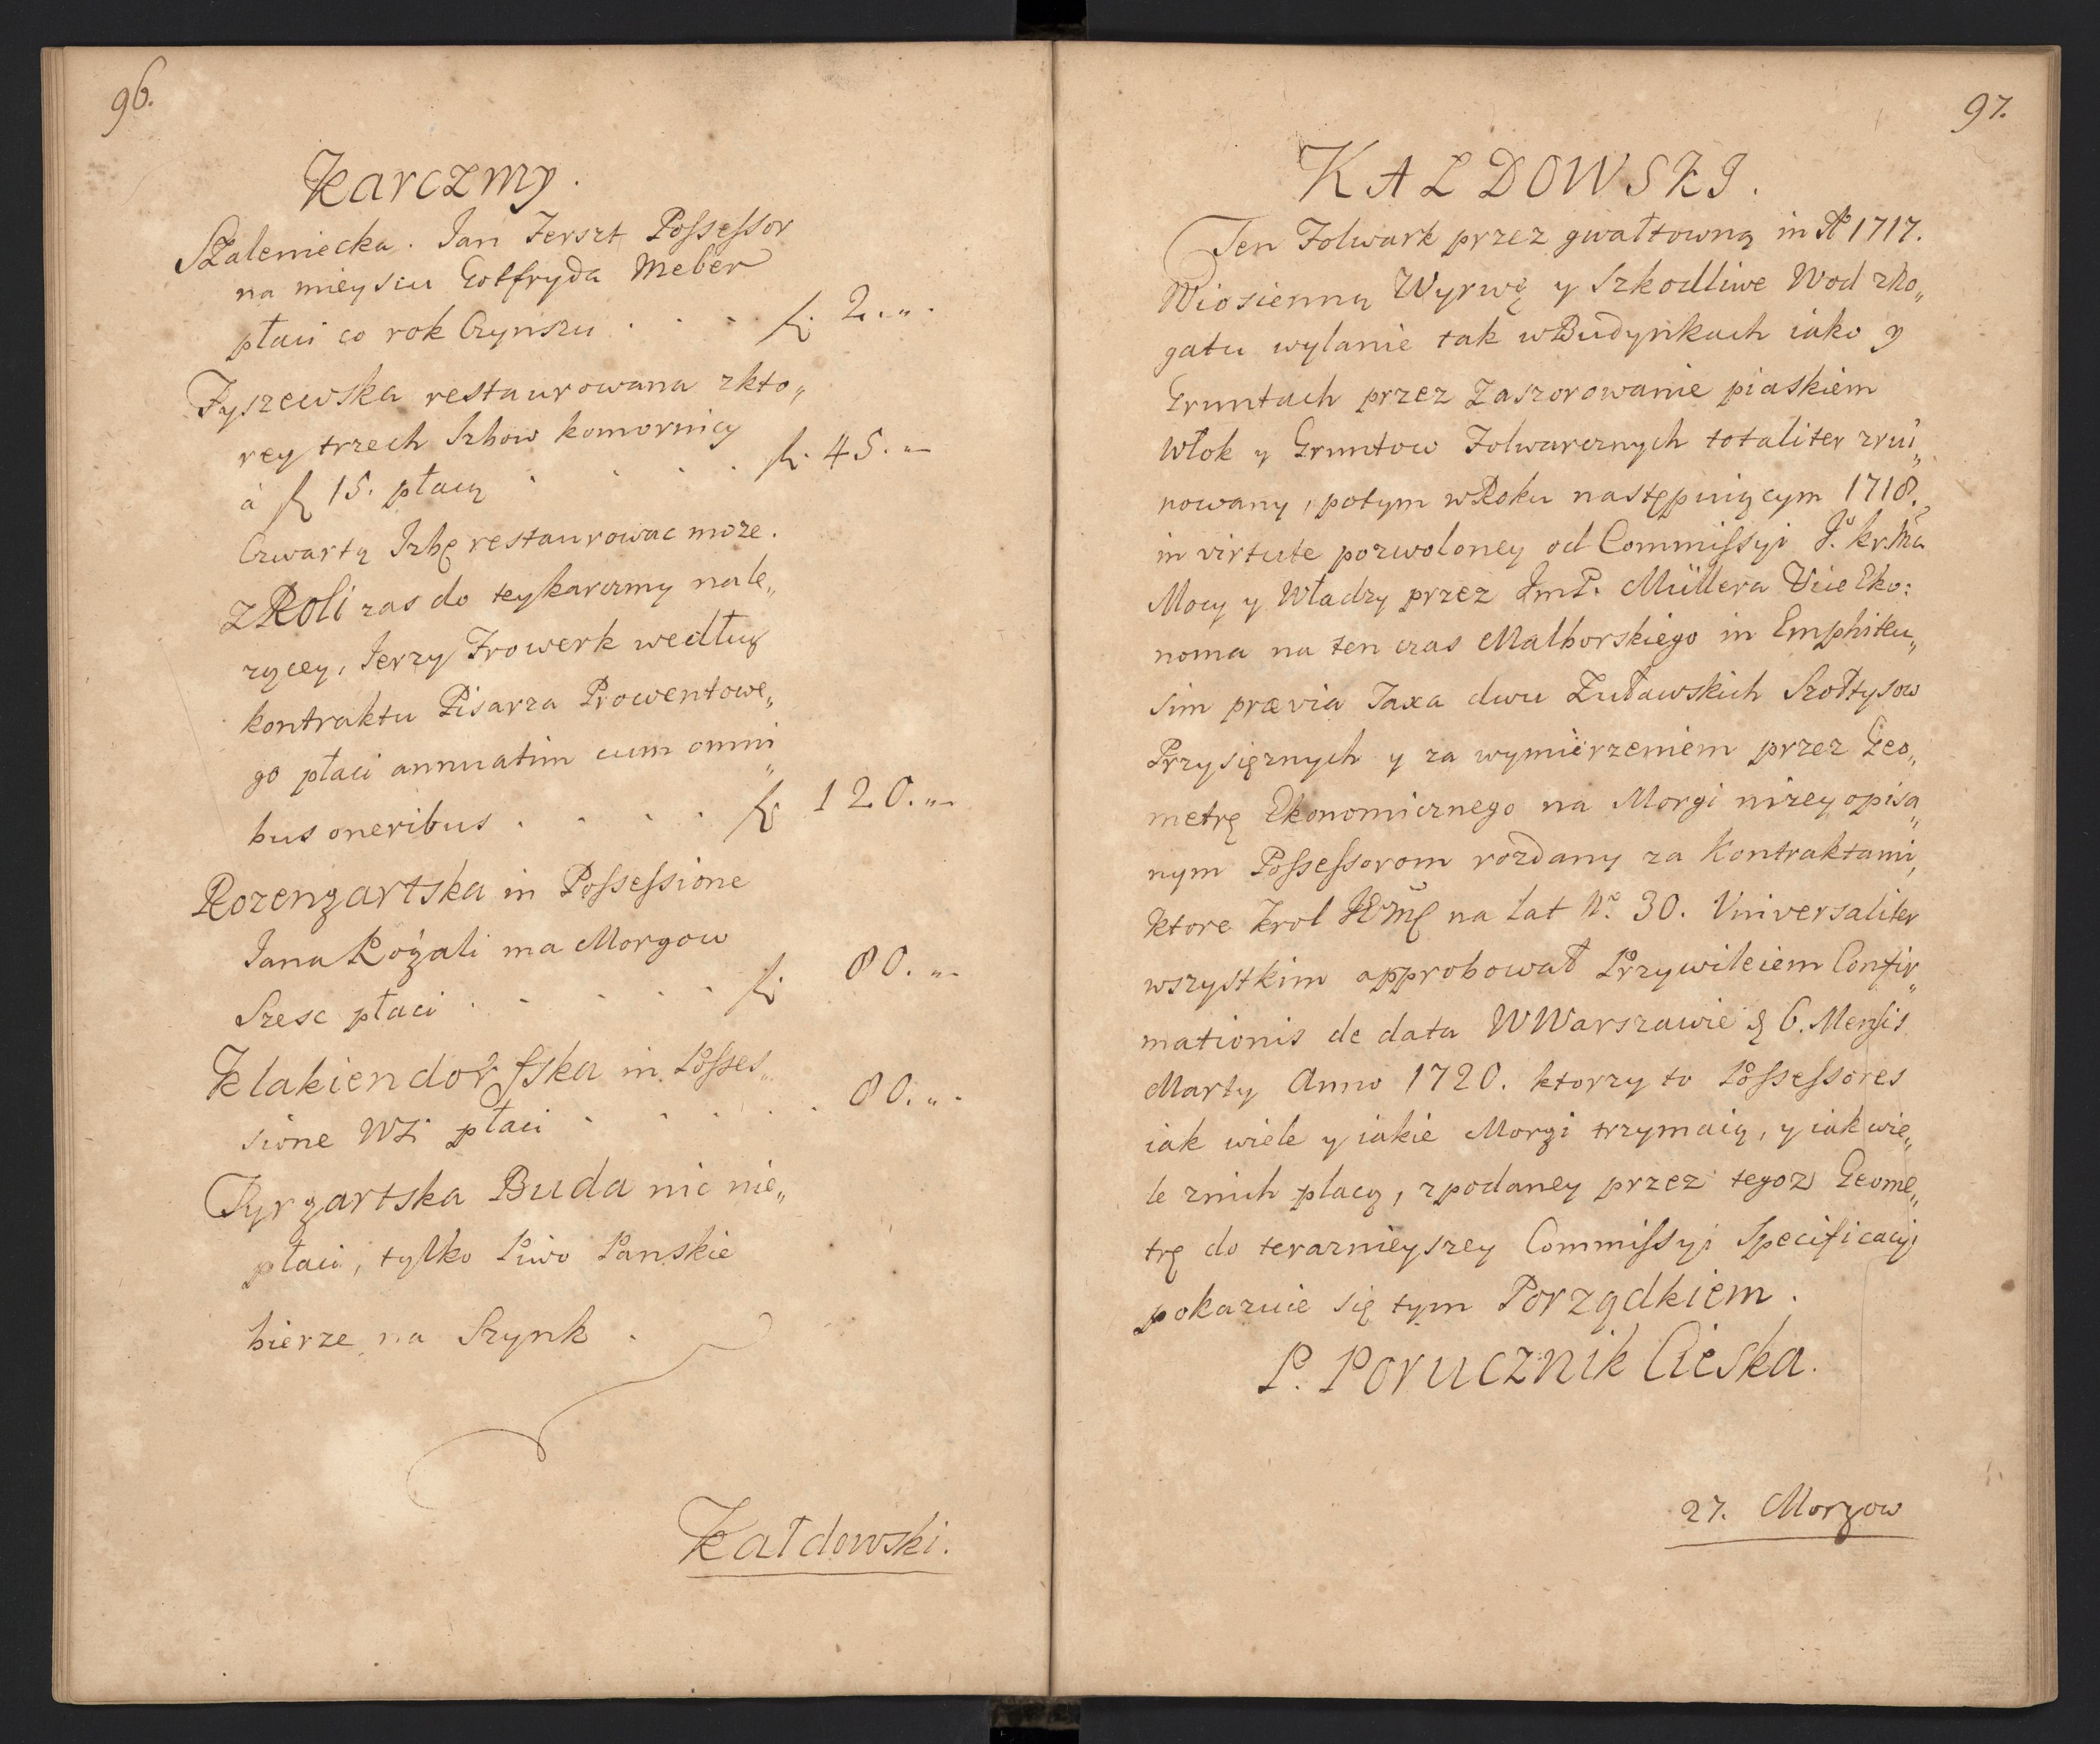 96.
Karczmy.
Szaleniecka. Jan Ferszt Possessor
na mieyscu Gotfryda Meber
płaci co rok Czynszu . . . f. 2. „ .
Fyszewska restaurowana zkto„
rey trzech Izbow komornicy
à f 15. płacą . . . f. 45. „
Czwartą Izbę restaurowac może.
Z Roli zas do tey karczmy nale„
zącey, Jerzy Frowerk według
kontraktu Pisarza Prowentowe„
go płaci annuatim cum omni„
bus oneribus . . . . f. 120. „
Rozengartska in Possessione
Jana Rogali ma Morgow
Szesc płaci . . . . . f. 80. „
Klakiendorfska in Posses„
sione WŻ płaci . . . . . 80. „ .
Tyrgartska Buda nic nie„
płaci, tylko Piwo Panskie
bierze na Szynk .
Kałdowski.
97.
KALDOWSKI.
Ten Folwark przez gwałtowną in Aº 1717.
Wiosienną Wyrwę y Szkodliwe Wod zNo„
gatu wylanie tak w Budynkach iako y
Gruntach przez Zaszorowanie piaskiem
Włok y Gruntow Folwarcznych totaliter zrui„
nowany, potym w Roku następuiącym 1718.
in virtute pozwoloney od Commissyi J. kr. Mci
Mocy y Władzy przez JmP. Müllera Vice Eko:
noma na ten czas Malborskiego in Emphiteu„
sim prævia Taxa dwu Żuławskich Szołtysow
Przysięznych y za wymierzeniem przez Geo„
metrę Ekonomicznego na Morgi nizey opisa„
nym Possessorom rozdany za Kontraktami,
ktore Krol na Lat Nº. 30. Universaliter
wszystkim approbował Przywileiem Confir„
mationis de data W Warszawie d 6. Mensis
Marty Anno 1720. ktorzy to Possessores
iak wiele y iakie Morgi trzymaią, y iak wie„
le znich płacą, z podaney przez tegoz Geome„
trę do terazniejszey Commissyi Specificacyi
pokazuie się tym Porządkiem .
P. Porucznik Cieska.
27. Morgow